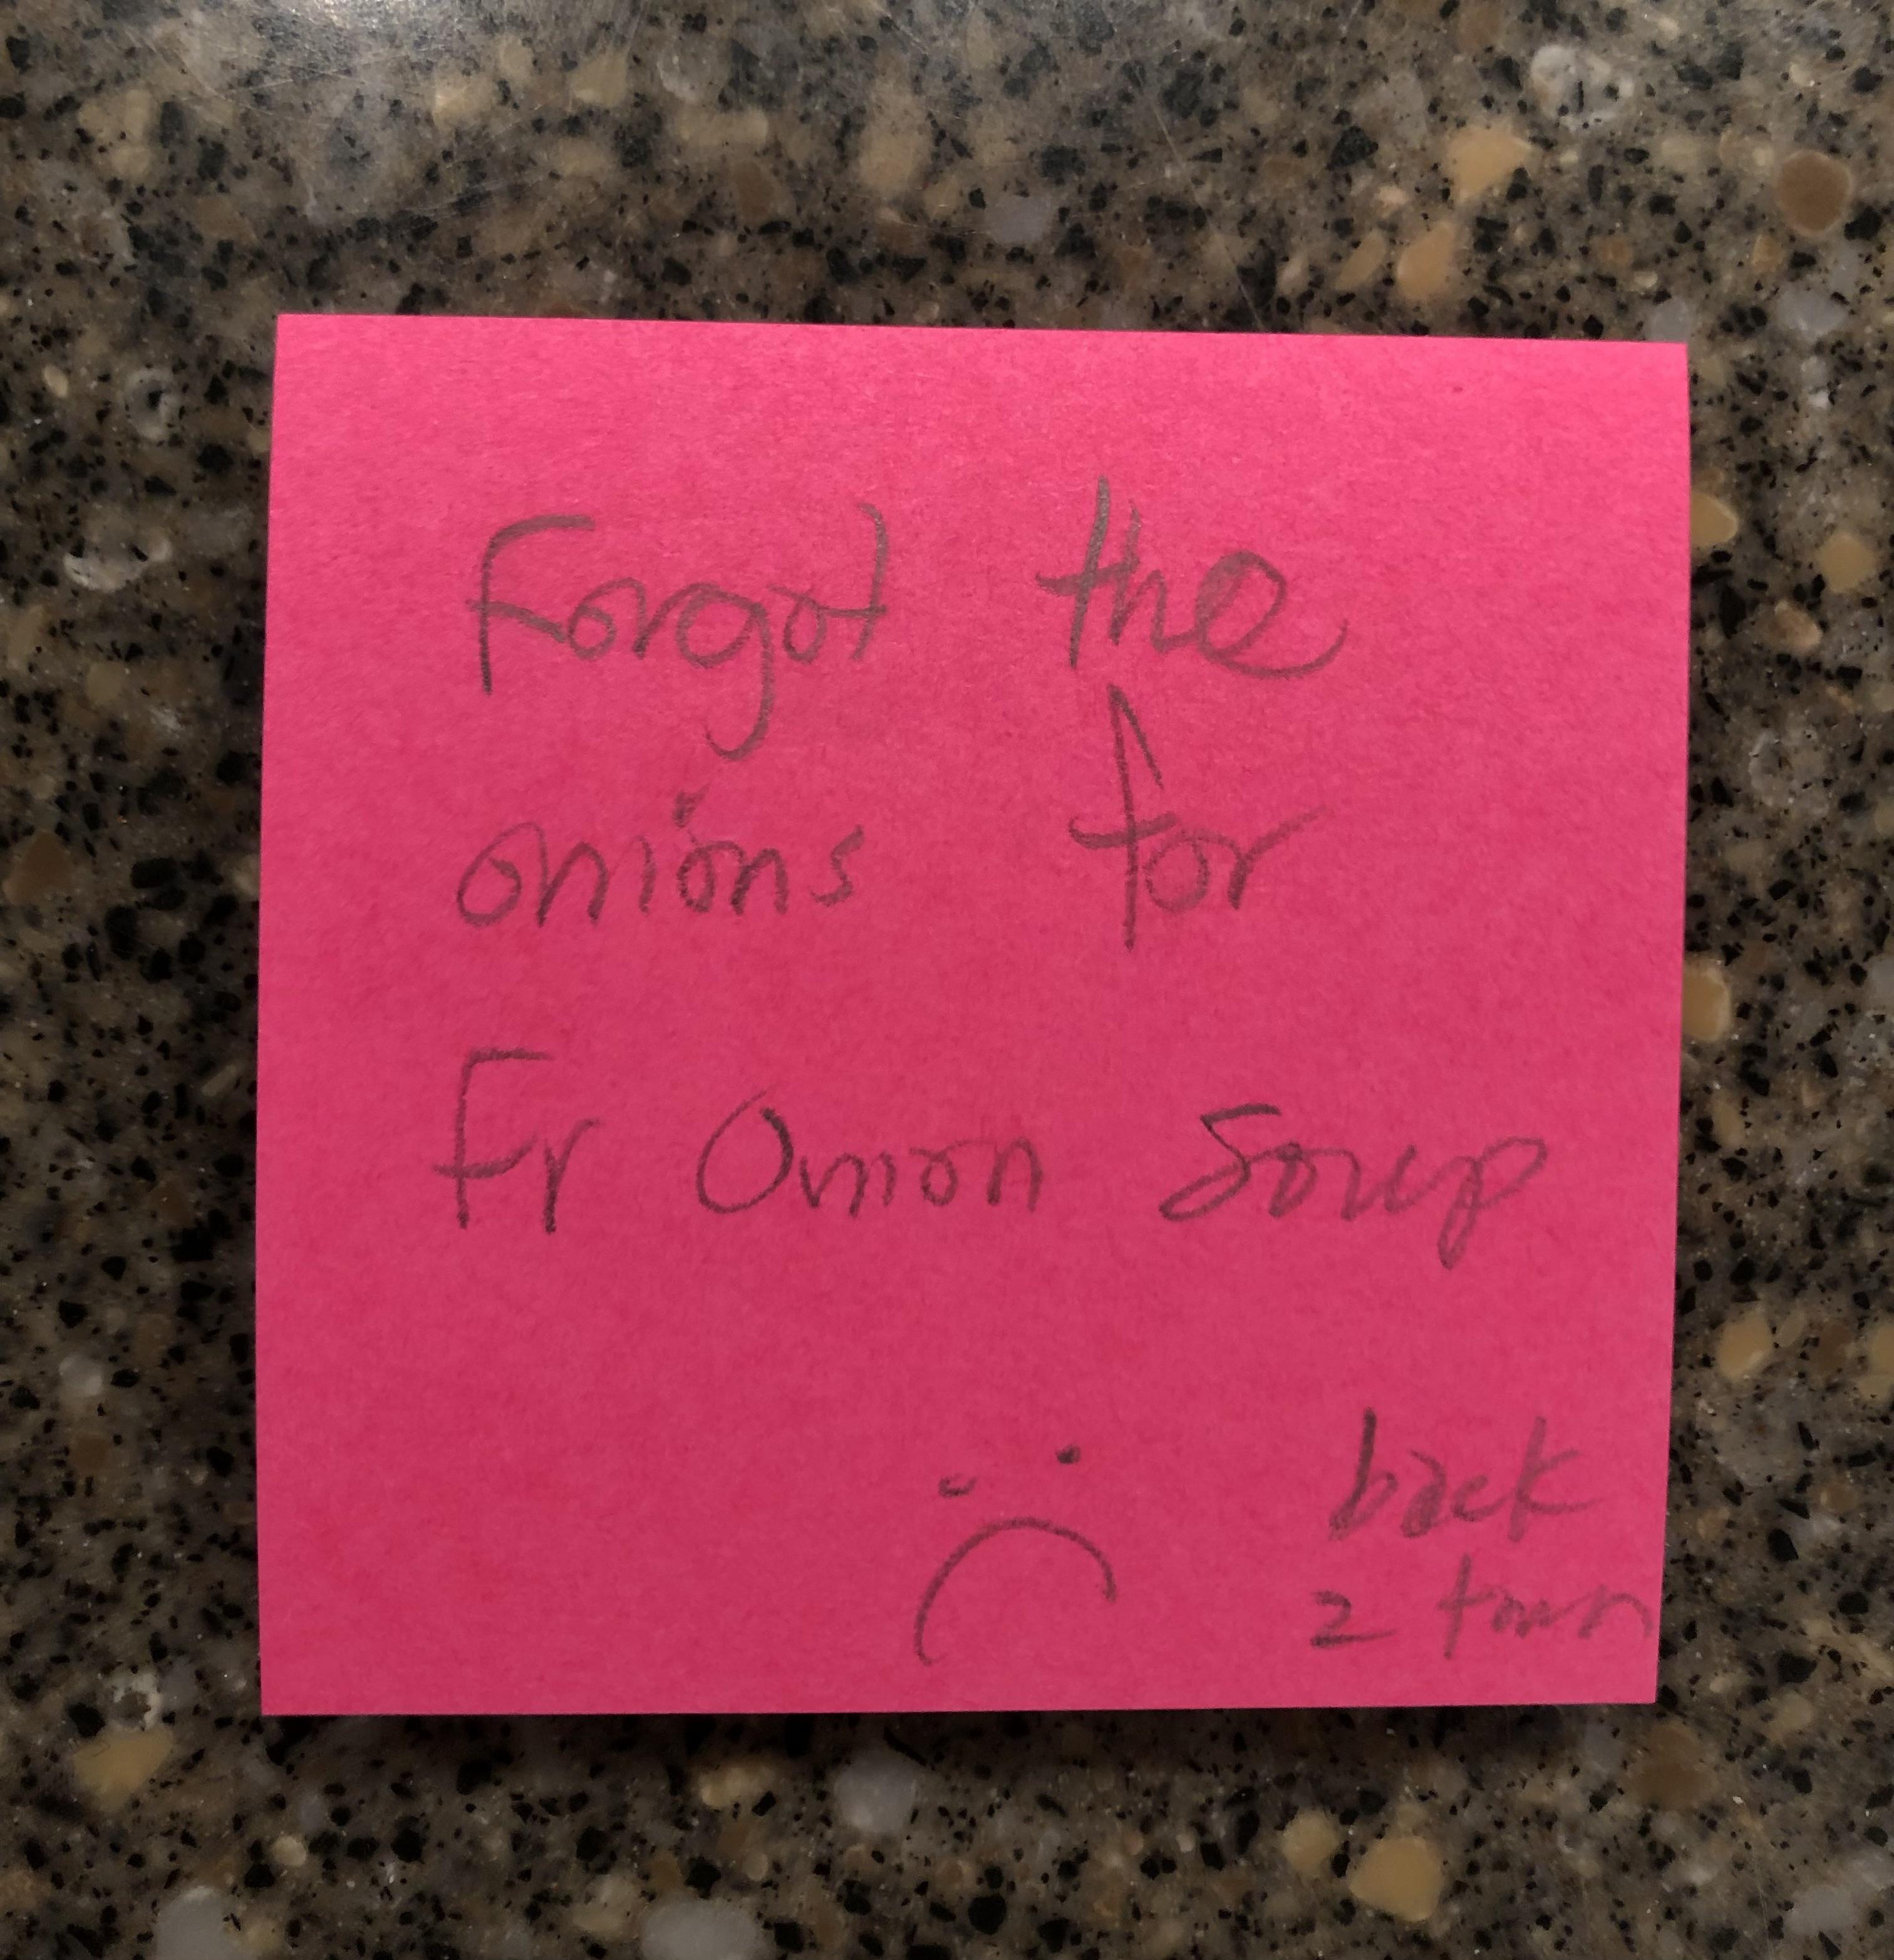 Forgot the
onions for
Fr Onion Soup
back
2 town